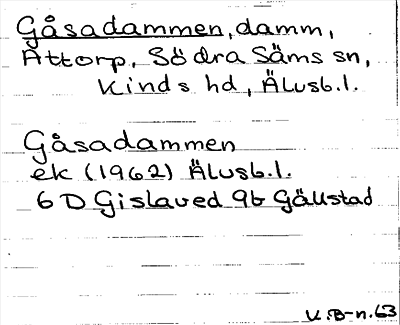 Gåsadammen, damm,
Attorp, Södra Säms sn,
Kinds hd, Älvsb.l.
Gåsadammen
ek (1962) Älvsb.l.
6D Gislaved 9b Gällstad
K.B-n.63